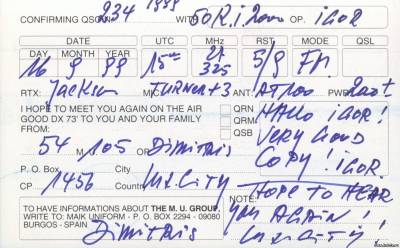 CONFIRMING QSO Nº 234 1999 WITH 50 R.I 2000 OP. iGOR
DATE UTC MHz RST MODE QSL
DAY MONTH YEAR
16 9 99 15 325 5/9 FM.
RTX: Jackson MIC: TURNER+3 ANT: PWR
I HOPE TO MEET YOU AGAIN ON THE AIR
GOOD DX 73' TO YOU AND YOUR FAMILY
FROM:
QRN
QRM
QSB
HALLO iGOR!
VERY GOOD
COPY! iGOR.
54 M. 105 Dimitris
P. O. Box City
CP 1456 Country M.V. CITY
HOPE TO HEAR
NOTE:
YOU AGAIN!
TO HAVE INFORMATIONS ABOUT THE M. U. GROUP,
WRITE TO: MAIK UNIFORM - P. O. BOX 2294 - 09080
BURGOS - SPAIN
Dimitris